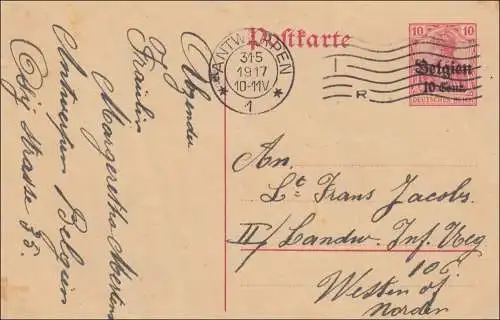 Postkarte
ANTWERPEN
31 5
1917
10-11V
1
I
R
10 10
Belgien
10 Cent.
DEUTSCHES REICH
An.
Lt Frans Jacobs
II/ Landw. Inf. Reg
106.
Westen of
Norden
Fräulein
Margaretha Mertens
Antwerpen Belgien
strasse 35.